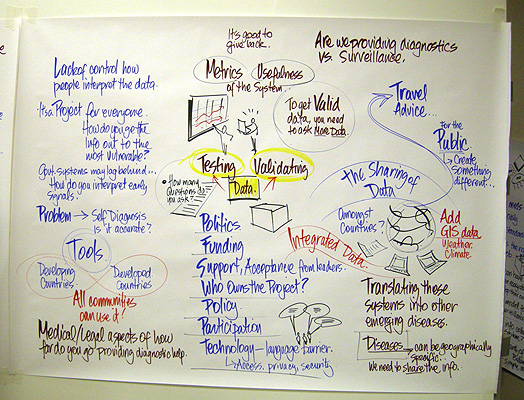 It's good to
give back.
Are we providing diagnostics
vs. Surveillance.
Lack of control how
people interpret the data.
Metrics
Usefulness
of the System...
It's a Project for everyone.
How do you get the
info out to the
most vulnerable?
To get Valid
data, you need
to ask More Data.
Travel
Advice...
For the
Public
Create
something
different...
Govt. systems may lag behind...
How do you interpret early
signals...
Testing
Validating
Data.
How many
Questions do
you ask?
the Sharing of
Data
Amongst
Countries?
Problem → Self Diagnosis
is it accurate?
Tools
Developing
Countries
Developed
Countries
All communities
can use it?
Medical/Legal aspects of how
far do you go providing diagnostic help.
Politics.
Funding
Support, Acceptance from leaders.
Who Owns the Project?
Policy
Participation
Technology — language barrier.
Access, privacy, security
Integrated Data.
Add
GIS data
Weather
Climate
Translating these
systems into other
emerging diseases.
Diseases → can be geographically
specific..
We need to share the info.